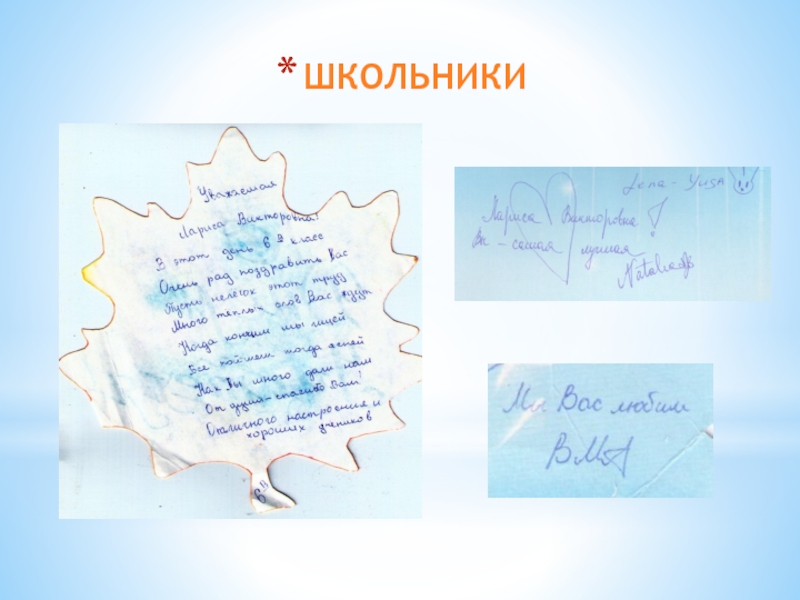 * школьники
Уважаемая
Лариса Викторовна!
В этот день 6 В класс
Очень рад поздравить Вас
Пусть нелёгок этот труд
Много тёплых слов Вас ждут
Когда кончим мы лицей
Все поймём тогда ясней
Как Вы много дали нам
От души - спасибо Вам!
Отличного настроения и
хороших учеников
6 В
Lena - Yuga
Лариса Викторовна!
Вы - самая лучшая
Natalia
Мы Вас любим
ВМА